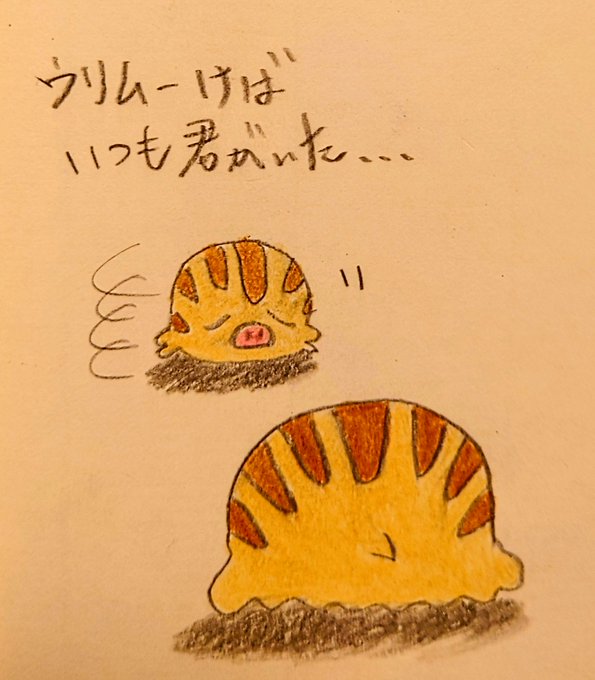 ウリムーけば
いつも君がいた...